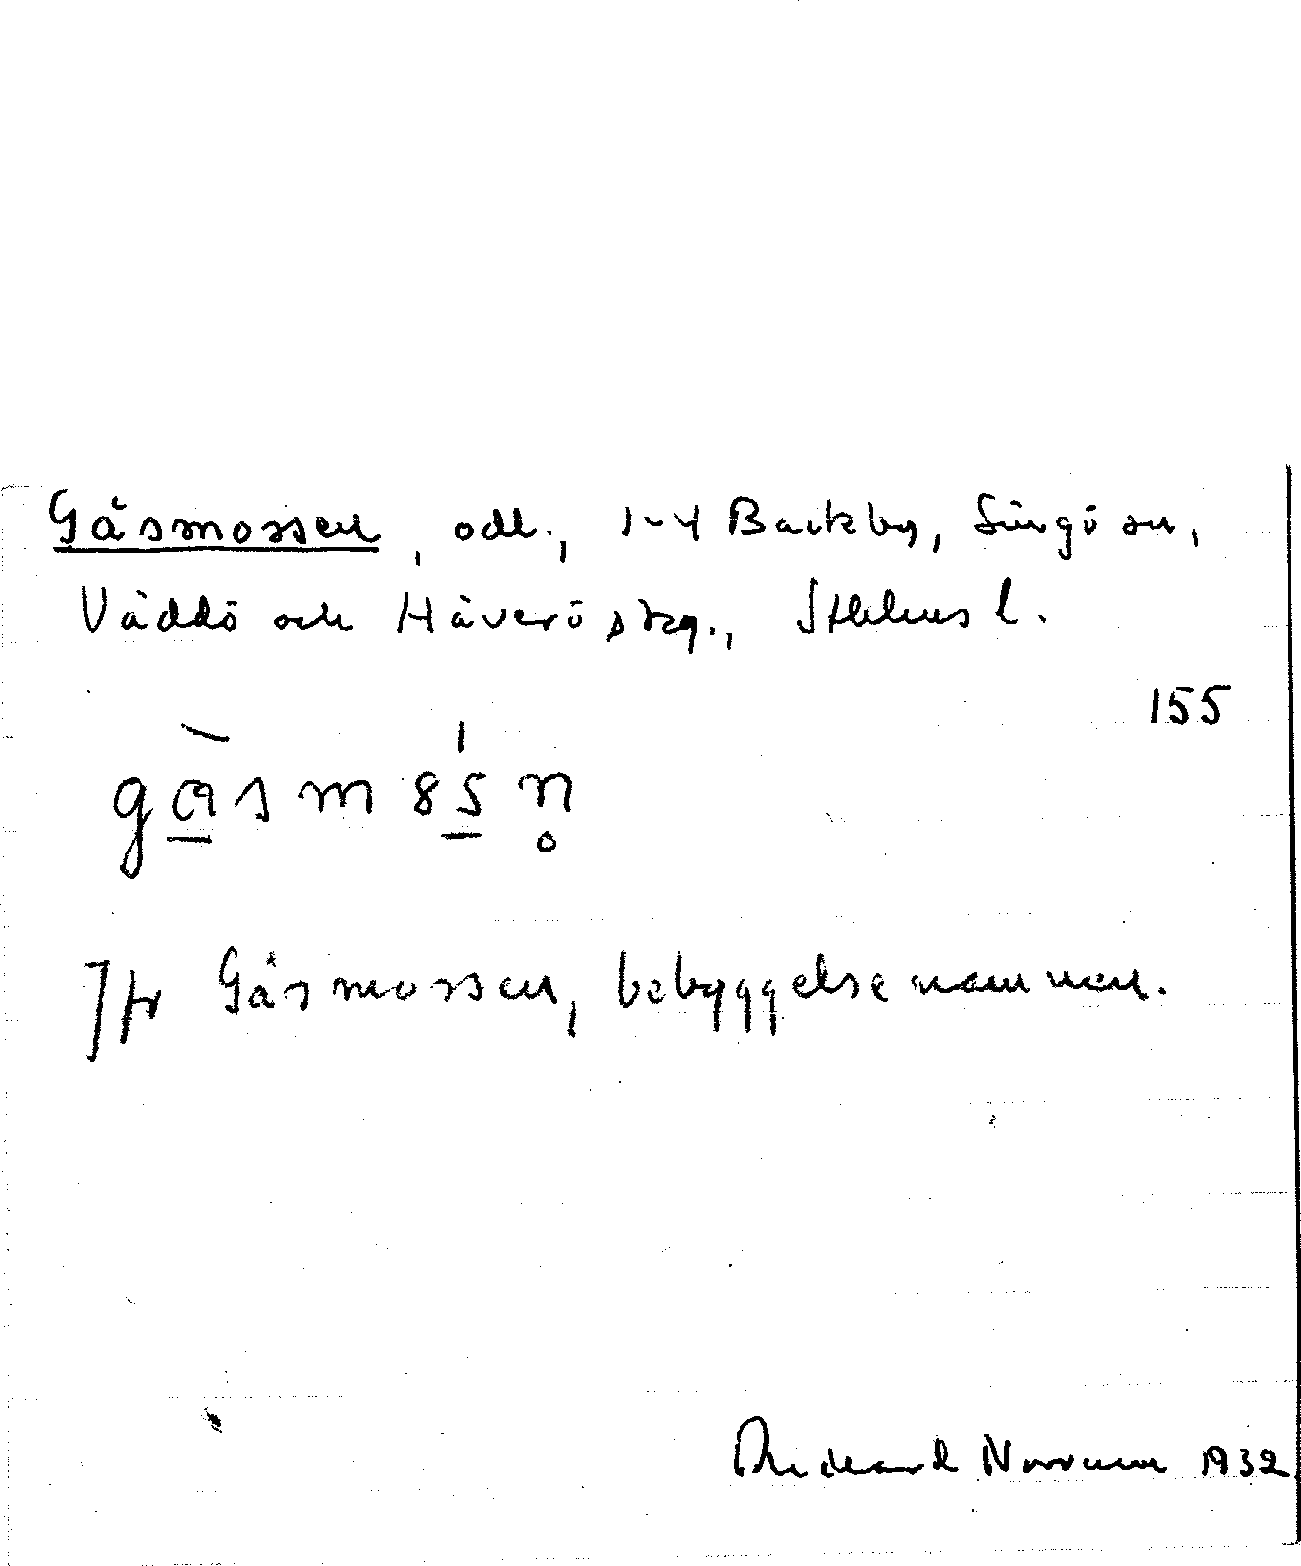 Gåsmossen, odl., 1-4 Backby, Singö sn,
Väddö och Häverö skg., Sthlms l.
155
gɑ̀smȣs̲n̥
Jfr Gåsmossen, bebyggelsenamnen.
Rickard Norrman 1932